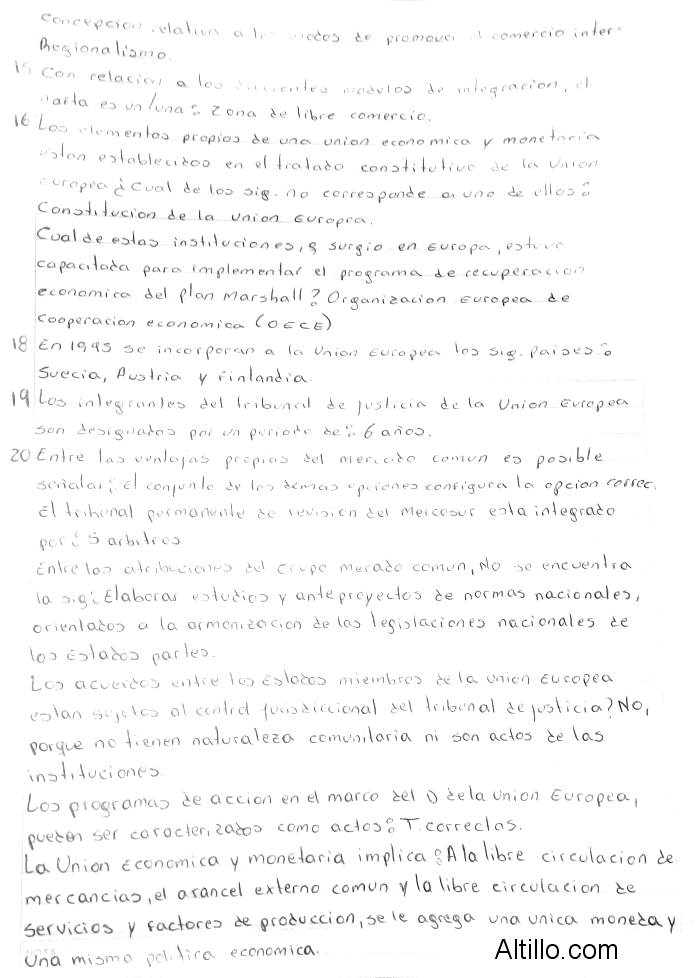 concepcion relativa a los modos de promover el comercio inter-
Regionalismo.
15 Con relacion a los diferentes modelos de integracion, el
nafta es un/una: Zona de libre comercio.
16 Los elementos propios de una union economica y monetaria
estan establecidos en el tratado constitutivo de la Union
Europea ¿ Cual de los sig. no corresponde a uno de ellos:
Constitucion de la Union Europea.
Cual de estas instituciones, q surgio en Europa, estuvo
capacitada para implementar el programa de recuperacion
economica del plan Marshall? Organizacion Europea de
Cooperacion economica (OECE)
18 En 1995 se incorporan a la Union Europea los sig. paises:
Suecia, Austria y Finlandia.
19 Los integrantes del tribunal de justicia de la Union Europea
son designados por un periodo de: 6 años.
20 Entre las ventajas propias del mercado comun es posible
señalar: El conjunto de las demas opciones configura la opcion correc.
El tribunal permanente de revision del Mercosur esta integrado
por: 5 arbitros.
Entre las atribuciones del Grupo mercado comun, No se encuentra
la sig: Elaborar estudios y anteproyectos de normas nacionales,
orientados a la armonizacion de las legislaciones nacionales de
los Estados partes.
Los acuerdos entre los Estados miembros de la Union Europea
estan sujetos al control jurisdiccional del tribunal de justicia? No,
porque no tienen naturaleza comunitaria ni son actos de las
instituciones.
Los programas de accion en el marco del D de la Union Europea,
pueden ser caracterizados como actos: T. correctas.
La Union Economica y monetaria implica: A la libre circulacion de
mercancias, el arancel externo comun y la libre circulacion de
servicios y factores de produccion, se le agrega una unica moneda y
una misma politica economica.
NOTA
Altillo.com